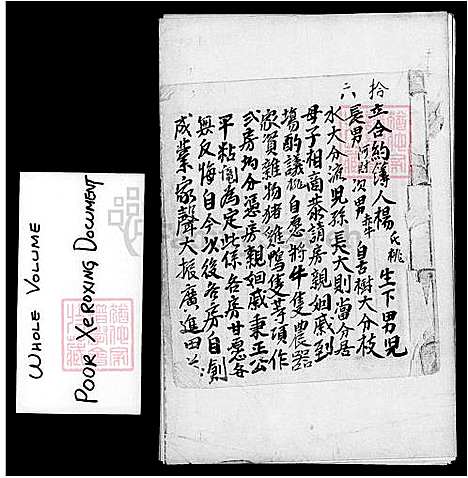 WHOLE VOLUME
POOR XEROXING DOCUMENT
拾六
立合約簿人楊氏桃生下男児
長男阿 次男赤牛自古樹大分枝
水大分流児孫長大則當分居
母子相商恭請房親姻戚到
塲酌議桃自愿將牛隻農器
家資雜物猪雞鴨隻等項作
弍房均分憑房親姻戚秉正公
平粘鬮為定此係各房甘愿各
無反悔自今以後各房自創
成業家聲大振廣進田